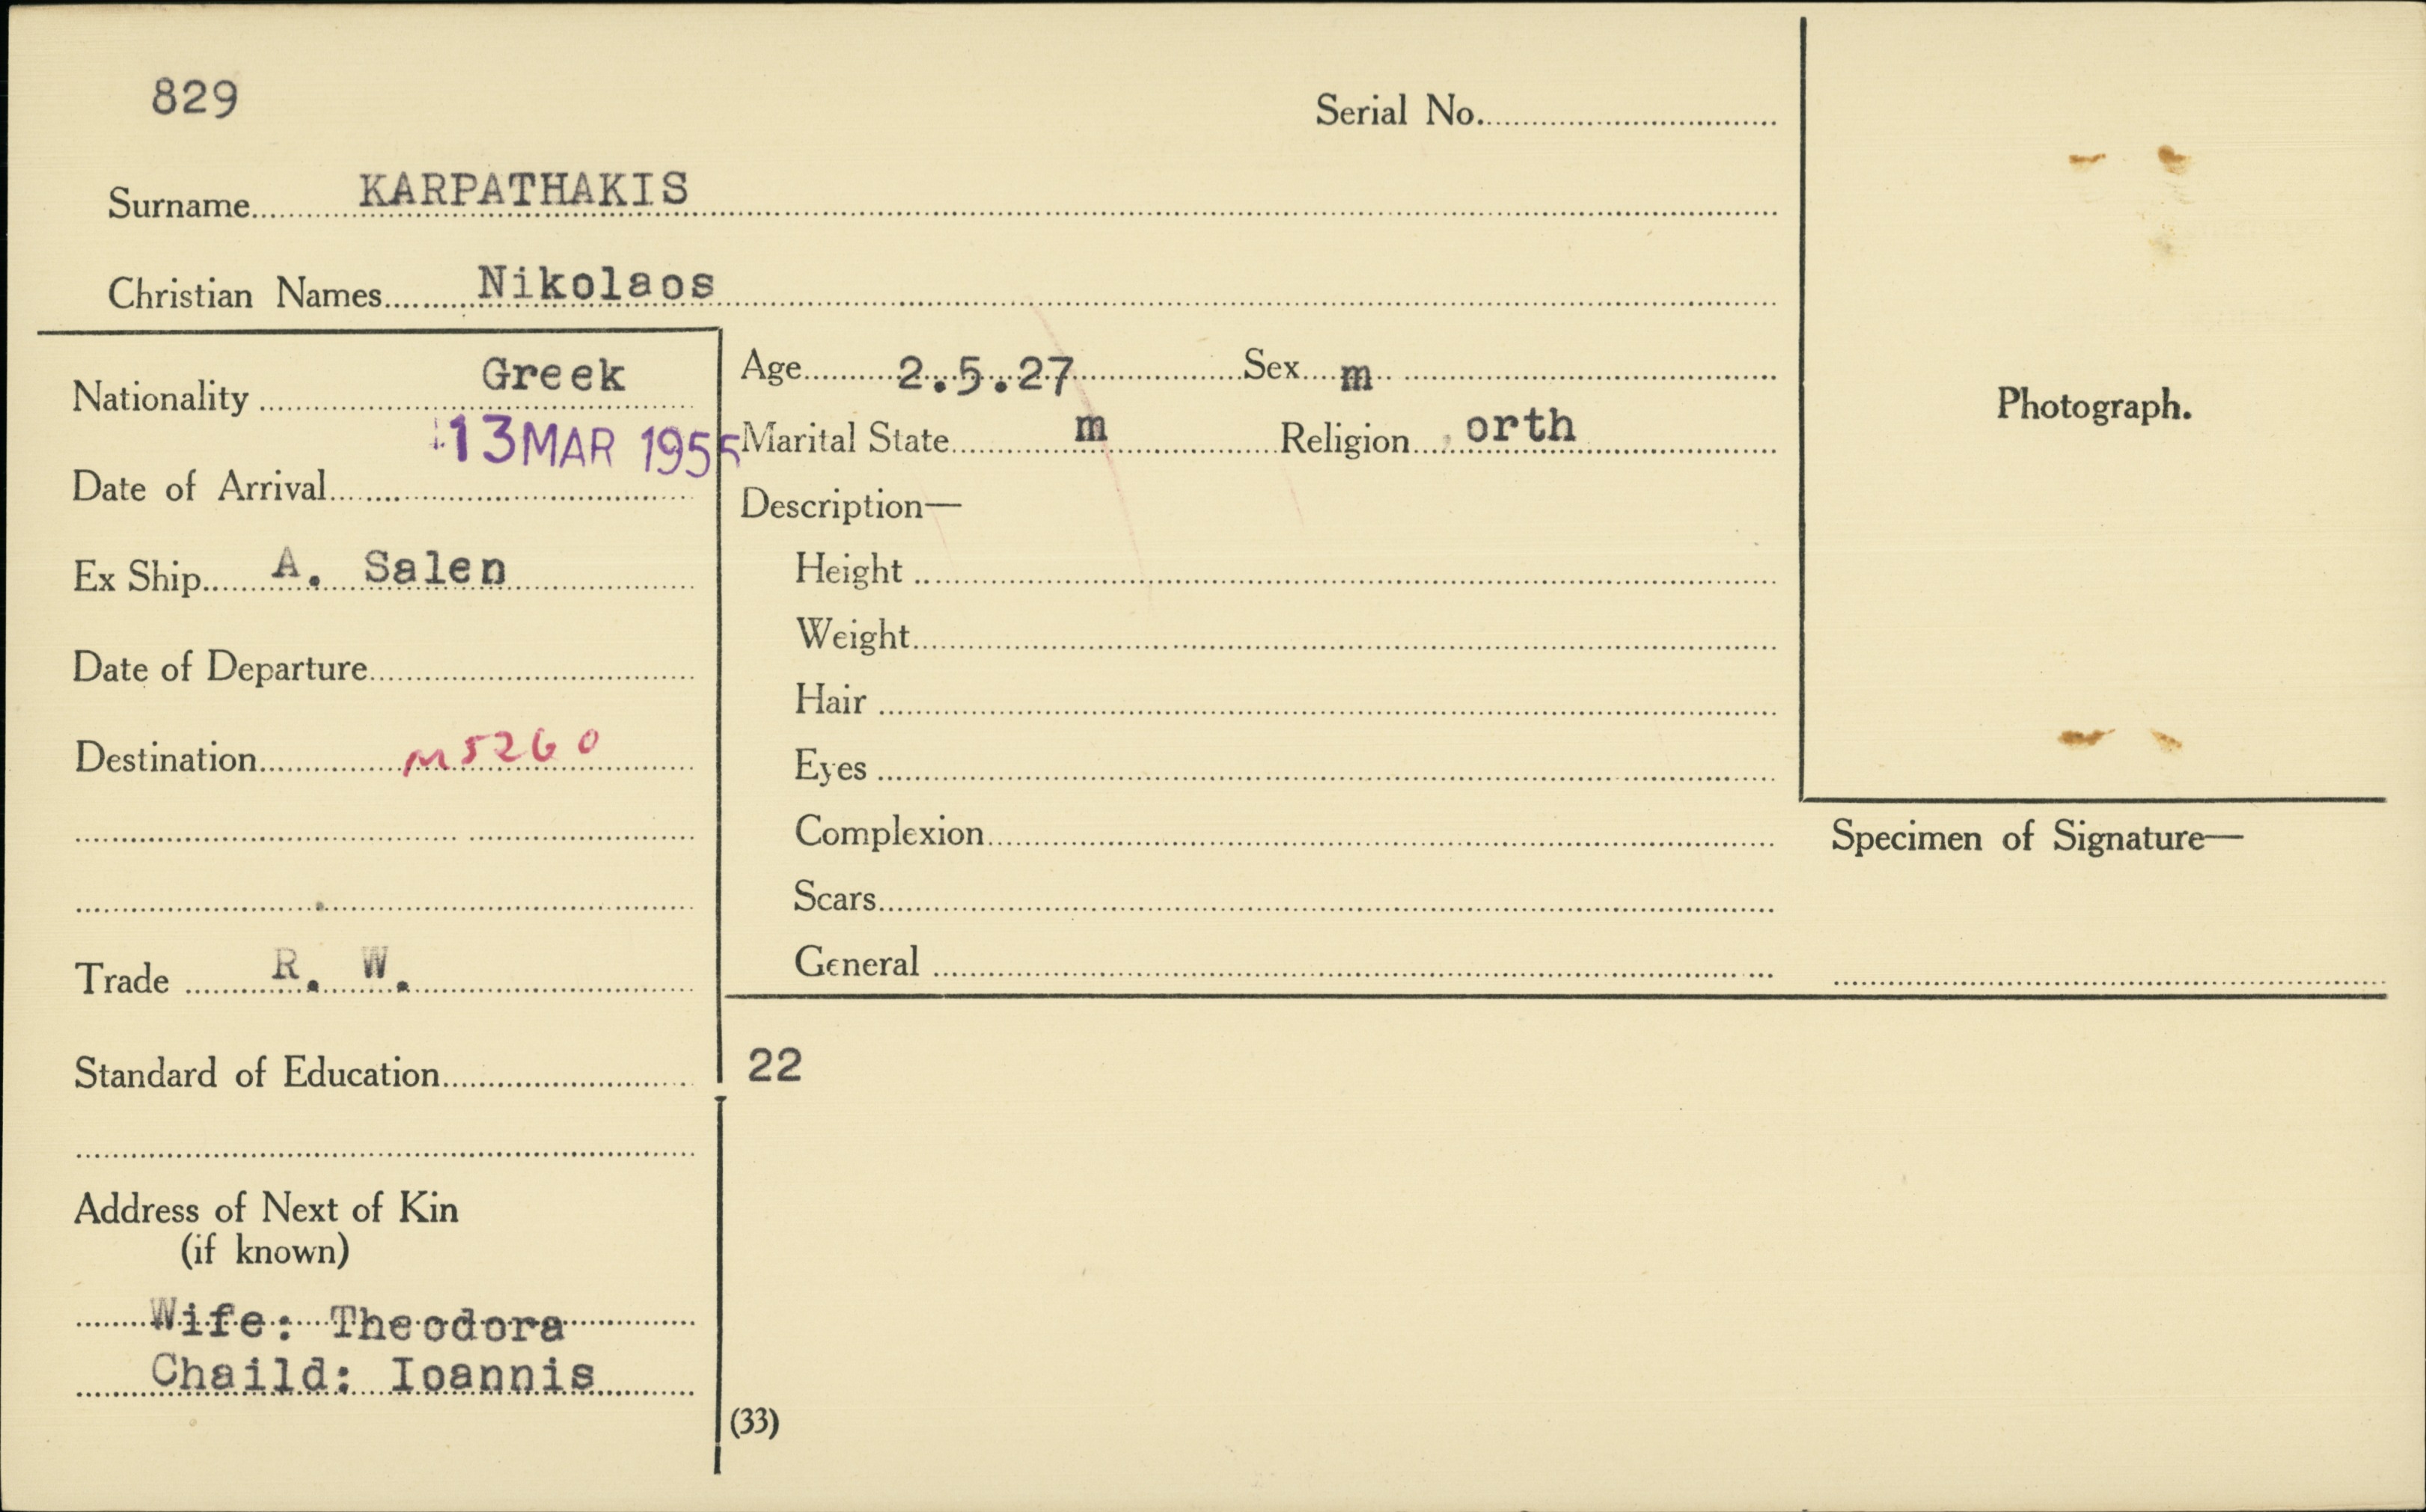 829
Serial No.
Surname KARPATHAKIS
Christian Names Nikolaos
Nationality Greek
Date of Arrival 13 MAR 1955
Ex Ship A. Salen
Date of Departure
Destination M5260
Trade R. W.
Standard of Education
Address of Next of Kin
(if known)
Wife: Theodora
Chaild: Ioannis
Age 2.5.27 Sex m
Marital State m Religion orth
Description—
Height
Weight
Hair
Eyes
Complexion
Scars
General
22
(33)
Photograph.
Specimen of Signature—